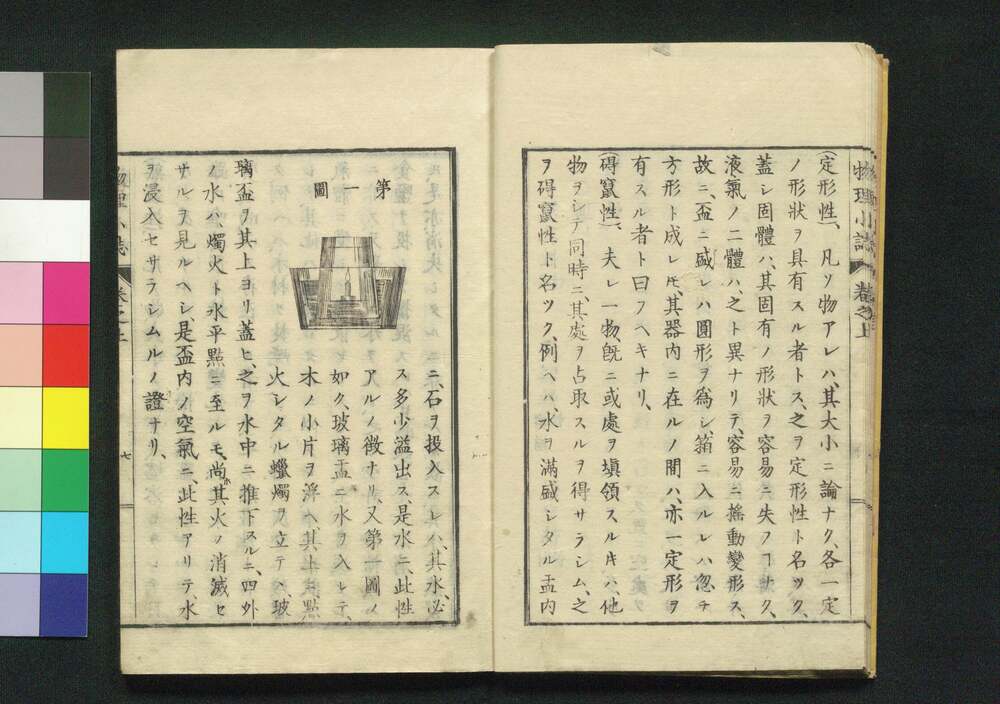 物理小誌 卷之上
(定形性)、凡ソ物アレハ、其大小ニ論ナク、各一定
ノ形狀ヲ具有スル者トス、之ヲ定形性ト名ツク、
蓋シ固體ハ、其固有ノ形狀ヲ容易ニ失フヿナク、
液氣ノ二體ハ、之ト異ナリテ、容易ニ搖動變形ス、
故ニ、盃ニ盛レハ圓形ヲ爲シ、箱ニ入ルレハ忽チ
方形ト成レ𪜈、其器内ニ在ルノ間ハ、亦一定形ヲ
有スル者ト曰フヘキナリ、
(碍竄性)、夫レ一物、既ニ或處ヲ填領スルキハ、他
物ヲシテ同時ニ、其處ヲ占取スルヲ得サラシム、之
ヲ碍竄性ト名ツク、例ヘハ、水ヲ滿盛シタル盂内
ニ、石ヲ投入スレハ、其水、必
ス多少溢出ス、是水ニ、此性
アルノ徴ナリ、又第一圖ノ
如ク、玻璃盂ニ水ヲ入レテ、
木ノ小片ヲ浮ヘ、其上ニ點
火シタル蠟燭ヲ立テヽ、玻
第一圖
璃盃ヲ其上ヨリ蓋ヒ、之ヲ水中ニ推下スルニ、四外
ノ水ハ、燭火ト水平點ニ至ルモ、尚其火ノ消滅セ
サルヲ見ルヘシ、是盃内ノ空氣ニ、此性アリテ、水
ヲ浸入セサラシムルノ證ナリ、
七